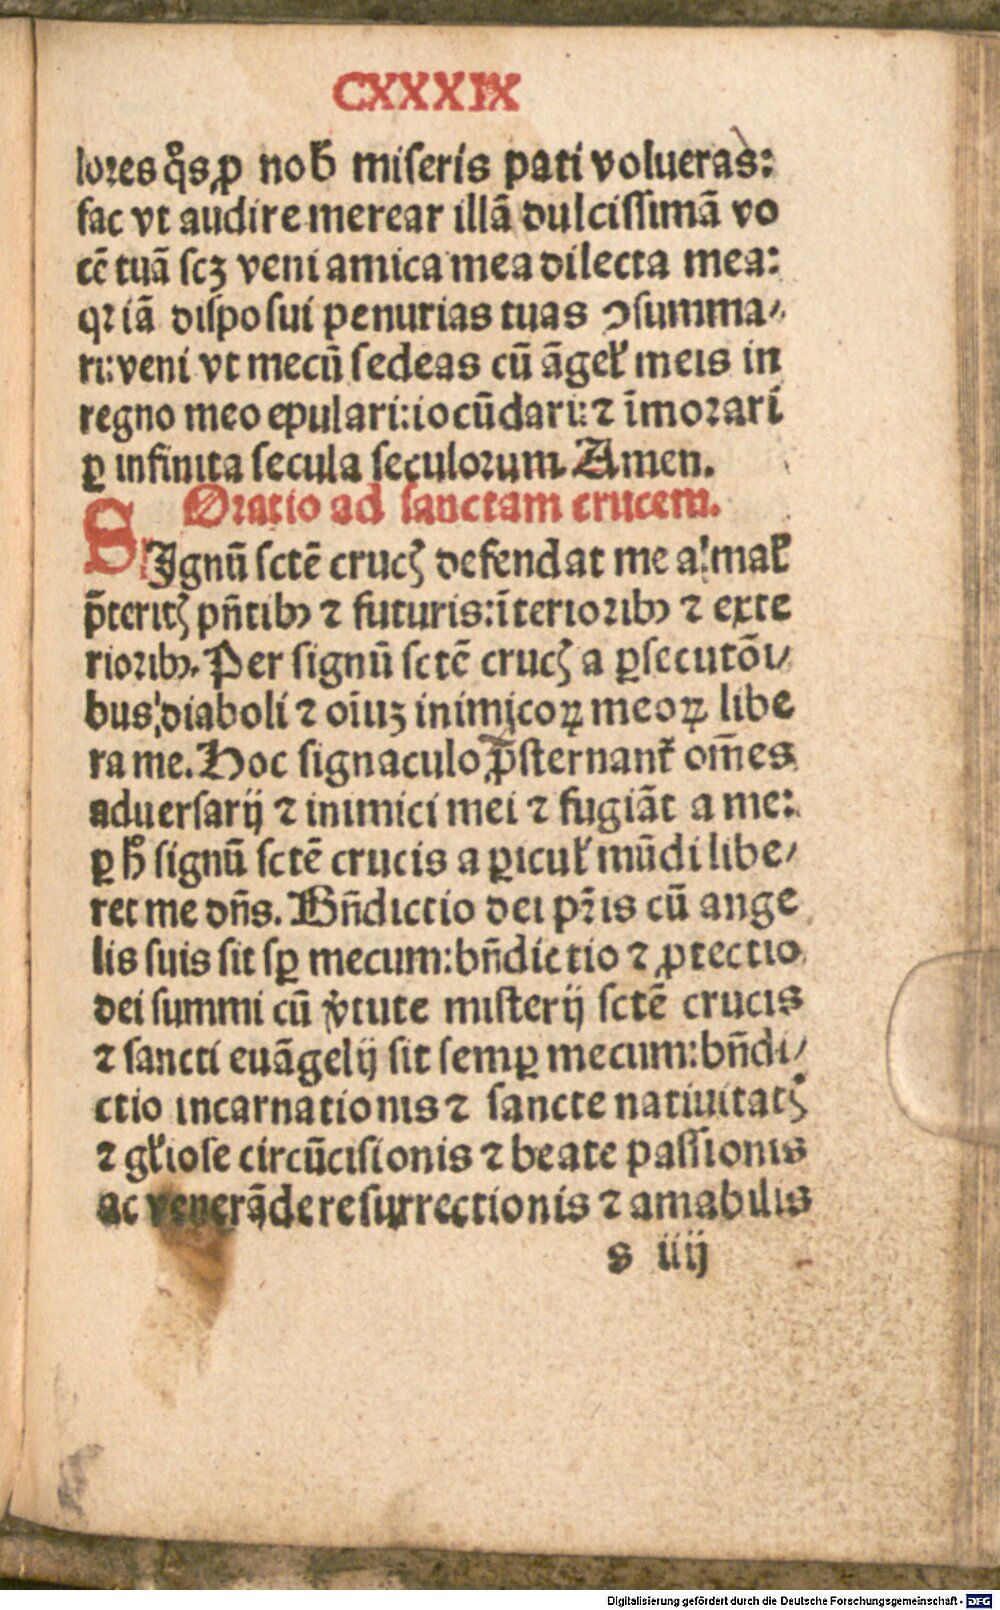 CXXXIX
lores q̃s ꝓ nob̃ miſeris pati volueras:
fac vt audire merear illã dulciſſimã vo
cẽ tuã ſcꝫ veni amica mea dilecta mea:
qꝛ iã diſpoſui penurias tuas ꝯſumma⸗
ri: veni vt mecũ ſedeas cũ ãgeł meis in
regno meo epulari: iocũdari: ⁊ ĩmoꝛari
ꝑ infinita ſecula ſeculoꝛum Amen.
Oratio ad ſanctam crucem.
SIgnũ ſctẽ crucꝭ defendat me a mał
p̃teritꝭ pñtibꝰ ⁊ futuris: ĩterioꝛibꝰ ⁊ exte
rioꝛibꝰ. Per ſignũ ſctẽ crucꝭ a ꝑſecutõi⸗
bus diaboli ⁊ oĩuꝫ inimicoꝝ meoꝝ libe
ra me. Hoc ſignaculo ꝓſternant᷑ om̃es
aduerſarij ⁊ inimici mei ⁊ fugiãt a me:
ꝑ h̃ ſignũ ſctẽ crucis a ꝑicuł mũdi libe⸗
ret me dñs. Bñdictio dei pr̃is cũ ange
lis ſuis ſit ſꝑ mecum: bñdictio ⁊ ꝓtectio
dei ſummi cũ v̾tute miſterij ſctẽ crucis
⁊ ſancti euãgelij ſit ſemꝑ mecum: bñdi⸗
ctio incarnationis ⁊ ſancte natiuitatꝭ
⁊ głioſe circũciſionis ⁊ beate paſſionis
ac venerãde reſurrectionis ⁊ amabilis
s iiij
Digitalisierung gefördert durch die Deutsche Forschungsgemeinschaft - DFG